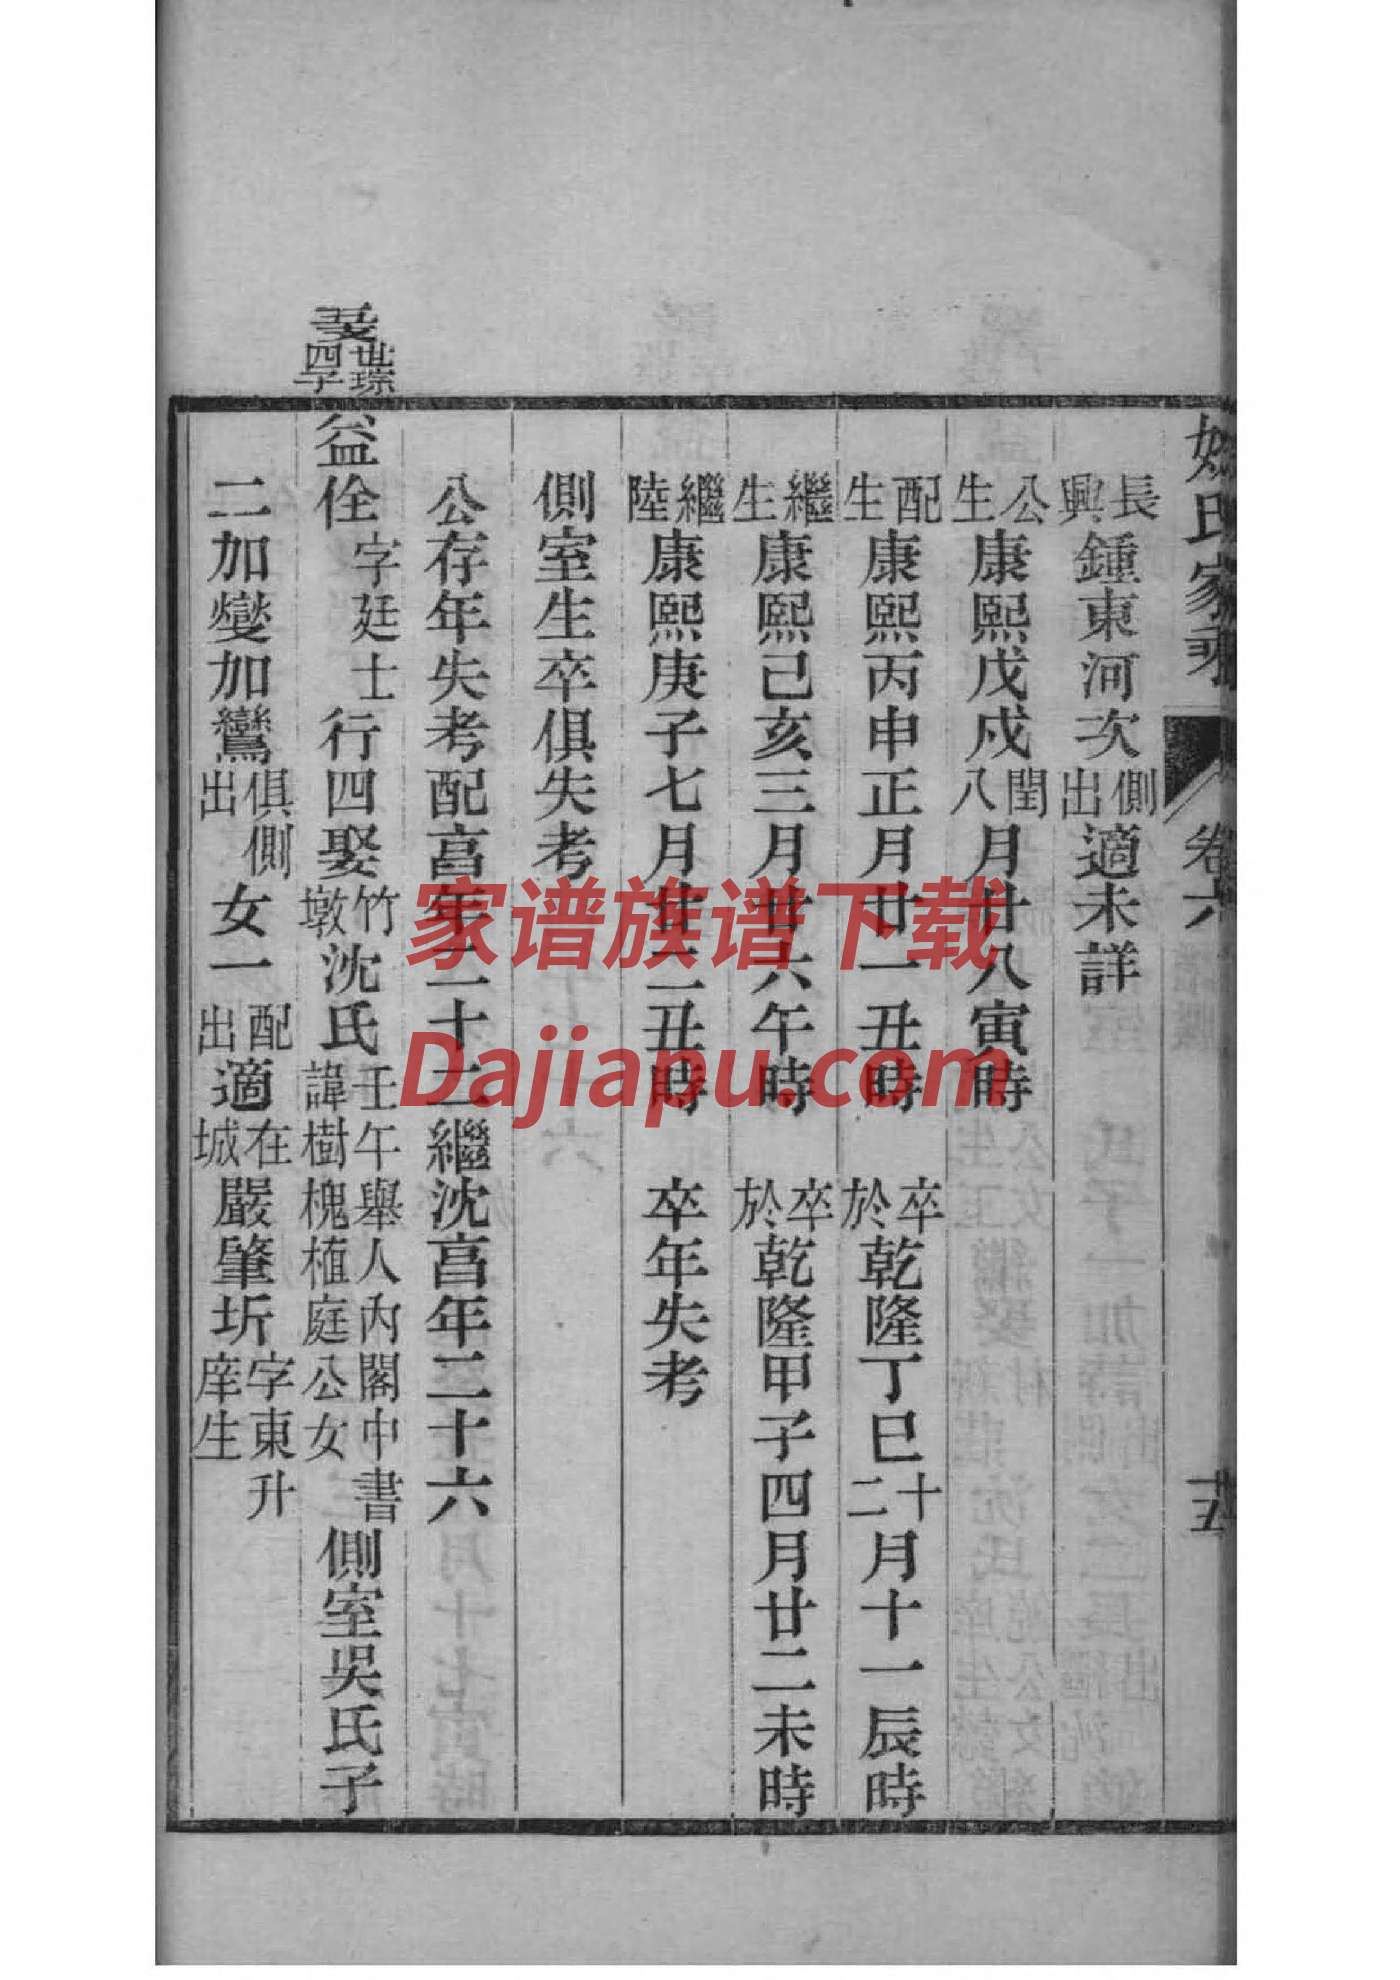 姚氏家乘 卷六 十五
長興鍾東河次側出適未詳
公生康熙戊戌閏八月廿八寅時
配生康熙丙申正月廿一丑時 卒於乾隆丁巳十二月十一辰時
繼生康熙己亥三月廿六午時 卒於乾隆甲子四月廿二未時
繼陸康熙庚子七月廿二丑時 卒年失考
側室生卒俱失考
公存年失考配亯年二十二繼沈亯年二十六
世琮四子
益佺字廷士行四娶竹墩沈氏壬午舉人內閣中書諱樹槐植庭公女側室吳氏子
二加燮加鸞俱側出女一配出適在城嚴肇圻字東升庠生
家谱族谱下载
Dajiapu.com